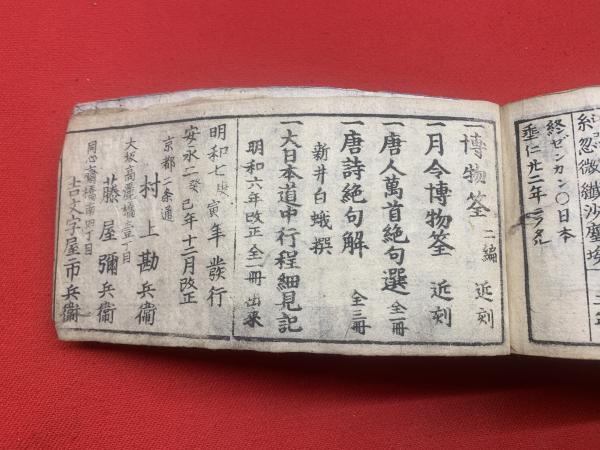 糾忽微纎沙塵埃
終ゼンカン〇日本
垂仁廿二年ニアタル
一博物筌 二編 近刻
一月令博物筌 近刻
一唐人萬首絶句選 全一冊
一唐詩絶句解 全三冊
新井白蛾撰
一大日本道中行程細見記
明和六年改正 全一冊 出来
明和七庚寅年發行
安永二癸巳年十二月改正
京都二条通
村上勘兵衞
大坂高麗橋壹丁目
藤屋彌兵衞
同心斎橋南四丁目
吉文字屋市兵衞